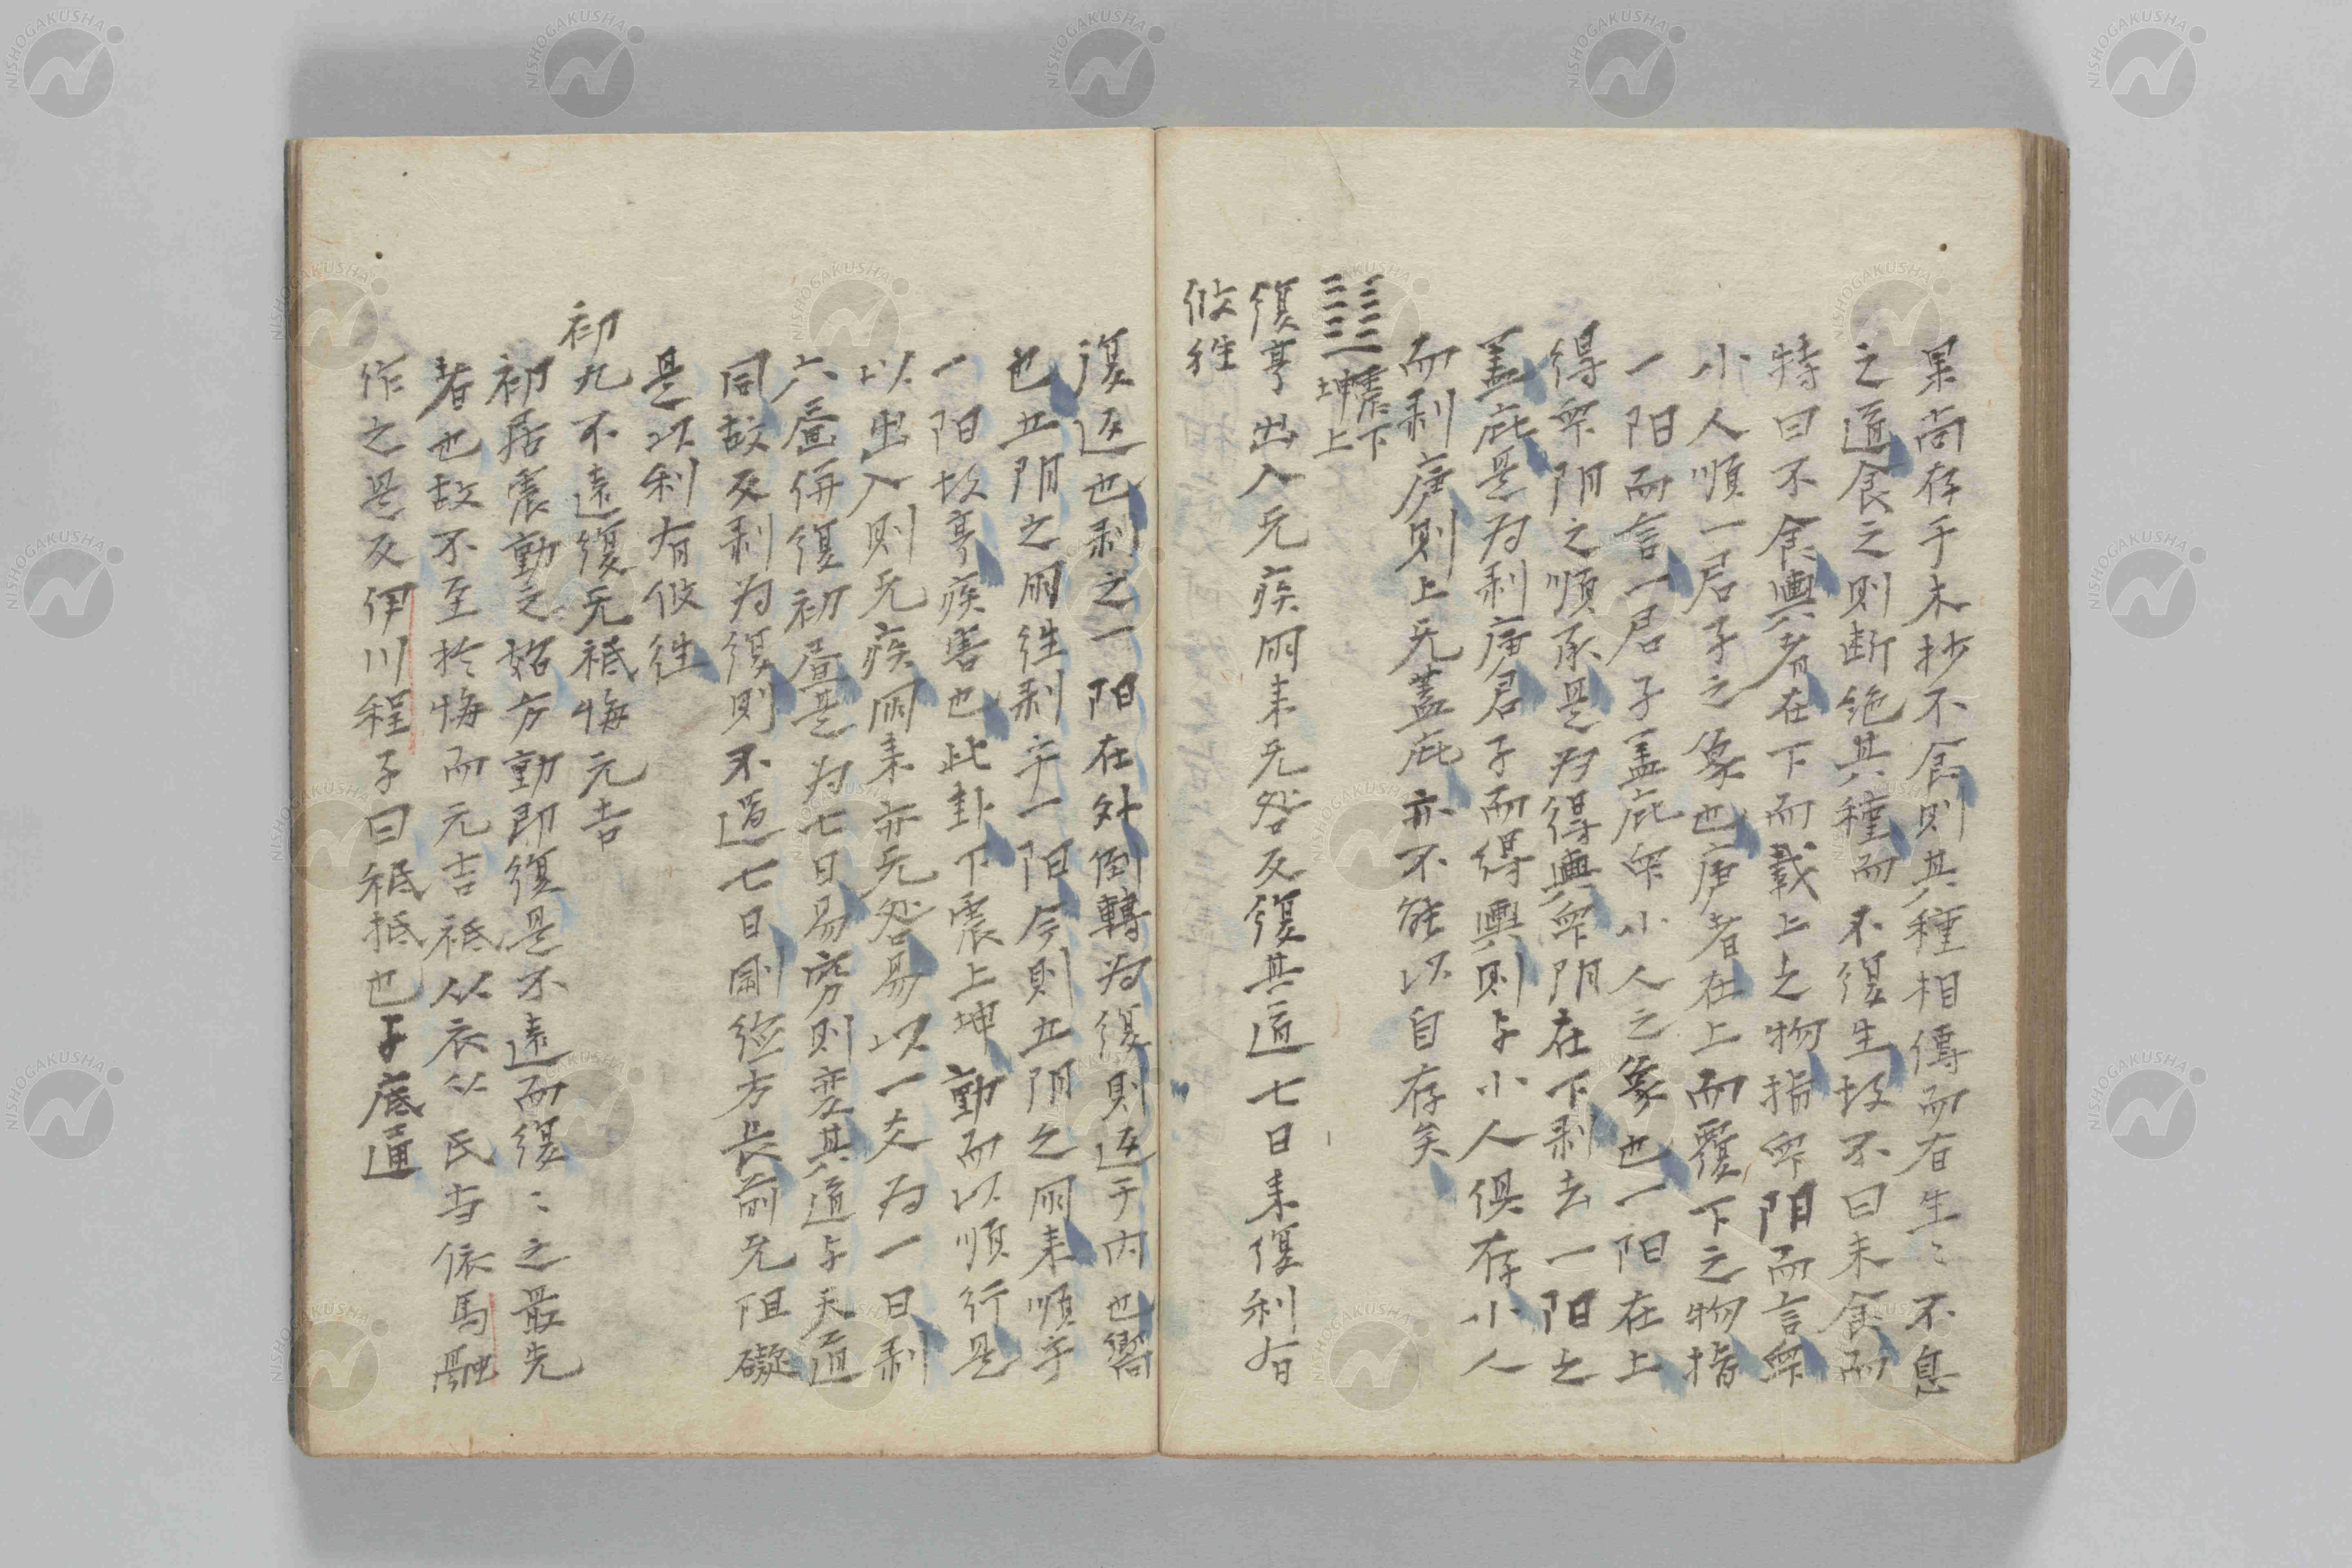 果尚存乎木抄不食則其種相傳而有生〻不息
之道食之則断絶其種而不得生故不曰未食而
特曰不食輿者在下而載上之物指衆阴而言衆
小人順一君子之象也庐者在上而覆下之物指
一阳而言一君子盖庇衆小人之象也一阳在上
得衆阴之順承是为得輿衆阴在下剥去一阳之
盖庇是为剥庐君子而得輿則与小人俱存小人
而剥庐則上无蓋庇亦不能以自存矣
震下
坤上
復亨出入无疾朋来无咎反復其道七日来復利有
攸往
復返也剥之一阳在外倒轉为復則返于内也嚮
也五阴之朋徃剥乎一阳今則五阴之朋来順乎
一阳故亨疾害也此卦下震上坤動而以順行是
以出入則无疾朋来亦无咎易以一爻为一日剥
六畫併復初畫是为七日易窮則变其道与天道
同故反剥为復則不過七日剛德方長前无阻礙
是以利有攸徃
初九不遠復无祗悔元吉
初居震動之始方動即復是不遠而復〻之最先
者也故不至於悔而元吉祗从衣从氏当依馬融
作之是反伊川程子曰祗抵也予底通
NISHOGAKUSHA